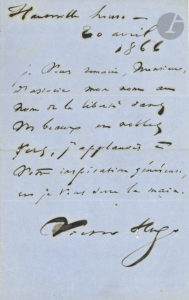 Hauteville house —
20 avril
1866
je vous remercie, Monsieur,
d'associer mon nom au
nom de la liberté dans
vos beaux et nobles
vers, j'applaudis à
votre inspiration généreuse,
et je vous serre la main.
Victor Hugo
ader